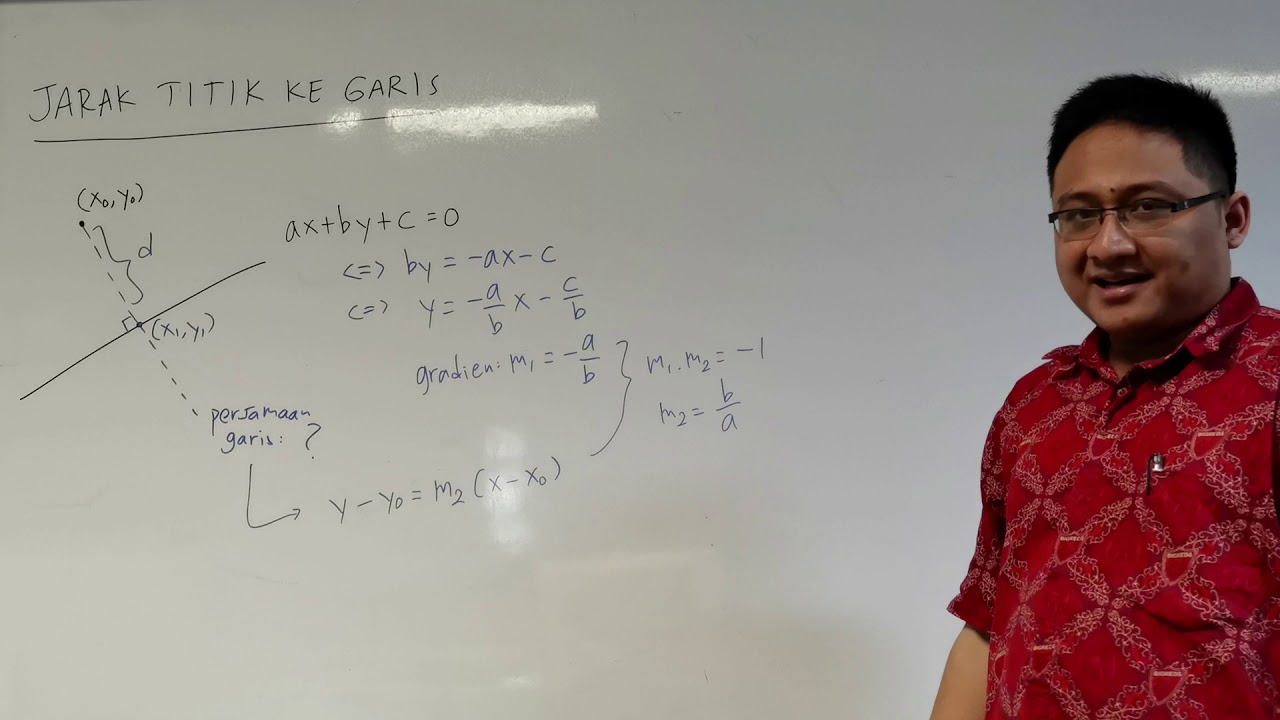 JARAK TITIK KE GARIS
(x₀, y₀)
d
(x₁, y₁)
persamaan
garis: ?
ax+by+c=0
<=> by = -ax-c
<=> y = -a/b x - c/b
gradien: m₁ = -a/b
m₁.m₂ = -1
m₂ = b/a
y-y₀ = m₂(x-x₀)